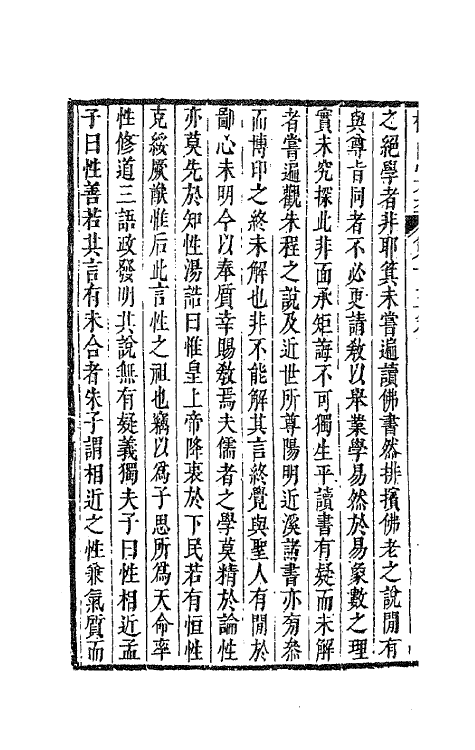 之絕學者非耶箕未嘗遍讀佛書然排擯佛老之說閒有
與尊肯同者不必更請敎以舉業學易然於易象數之理
實未究探此非面承矩誨不可獨生平讀書有疑而未解
者嘗遍觀朱程之說及近世所尊陽明近溪諸書亦旁叅
而博印之終未解也非不能解其言終覺與聖人有閒於
鄙心未明今以奉質幸賜敎焉夫儒者之學莫精於論性
亦莫先於知性湯誥曰惟皇上帝降衷於下民若有恒性
克綏厥猷惟后此言性之祖也竊以爲子思所爲天命率
性修道三語政發明其說無有疑義獨夫子曰性相近孟
子曰性善若其言有未合者朱子謂相近之性兼氣質而